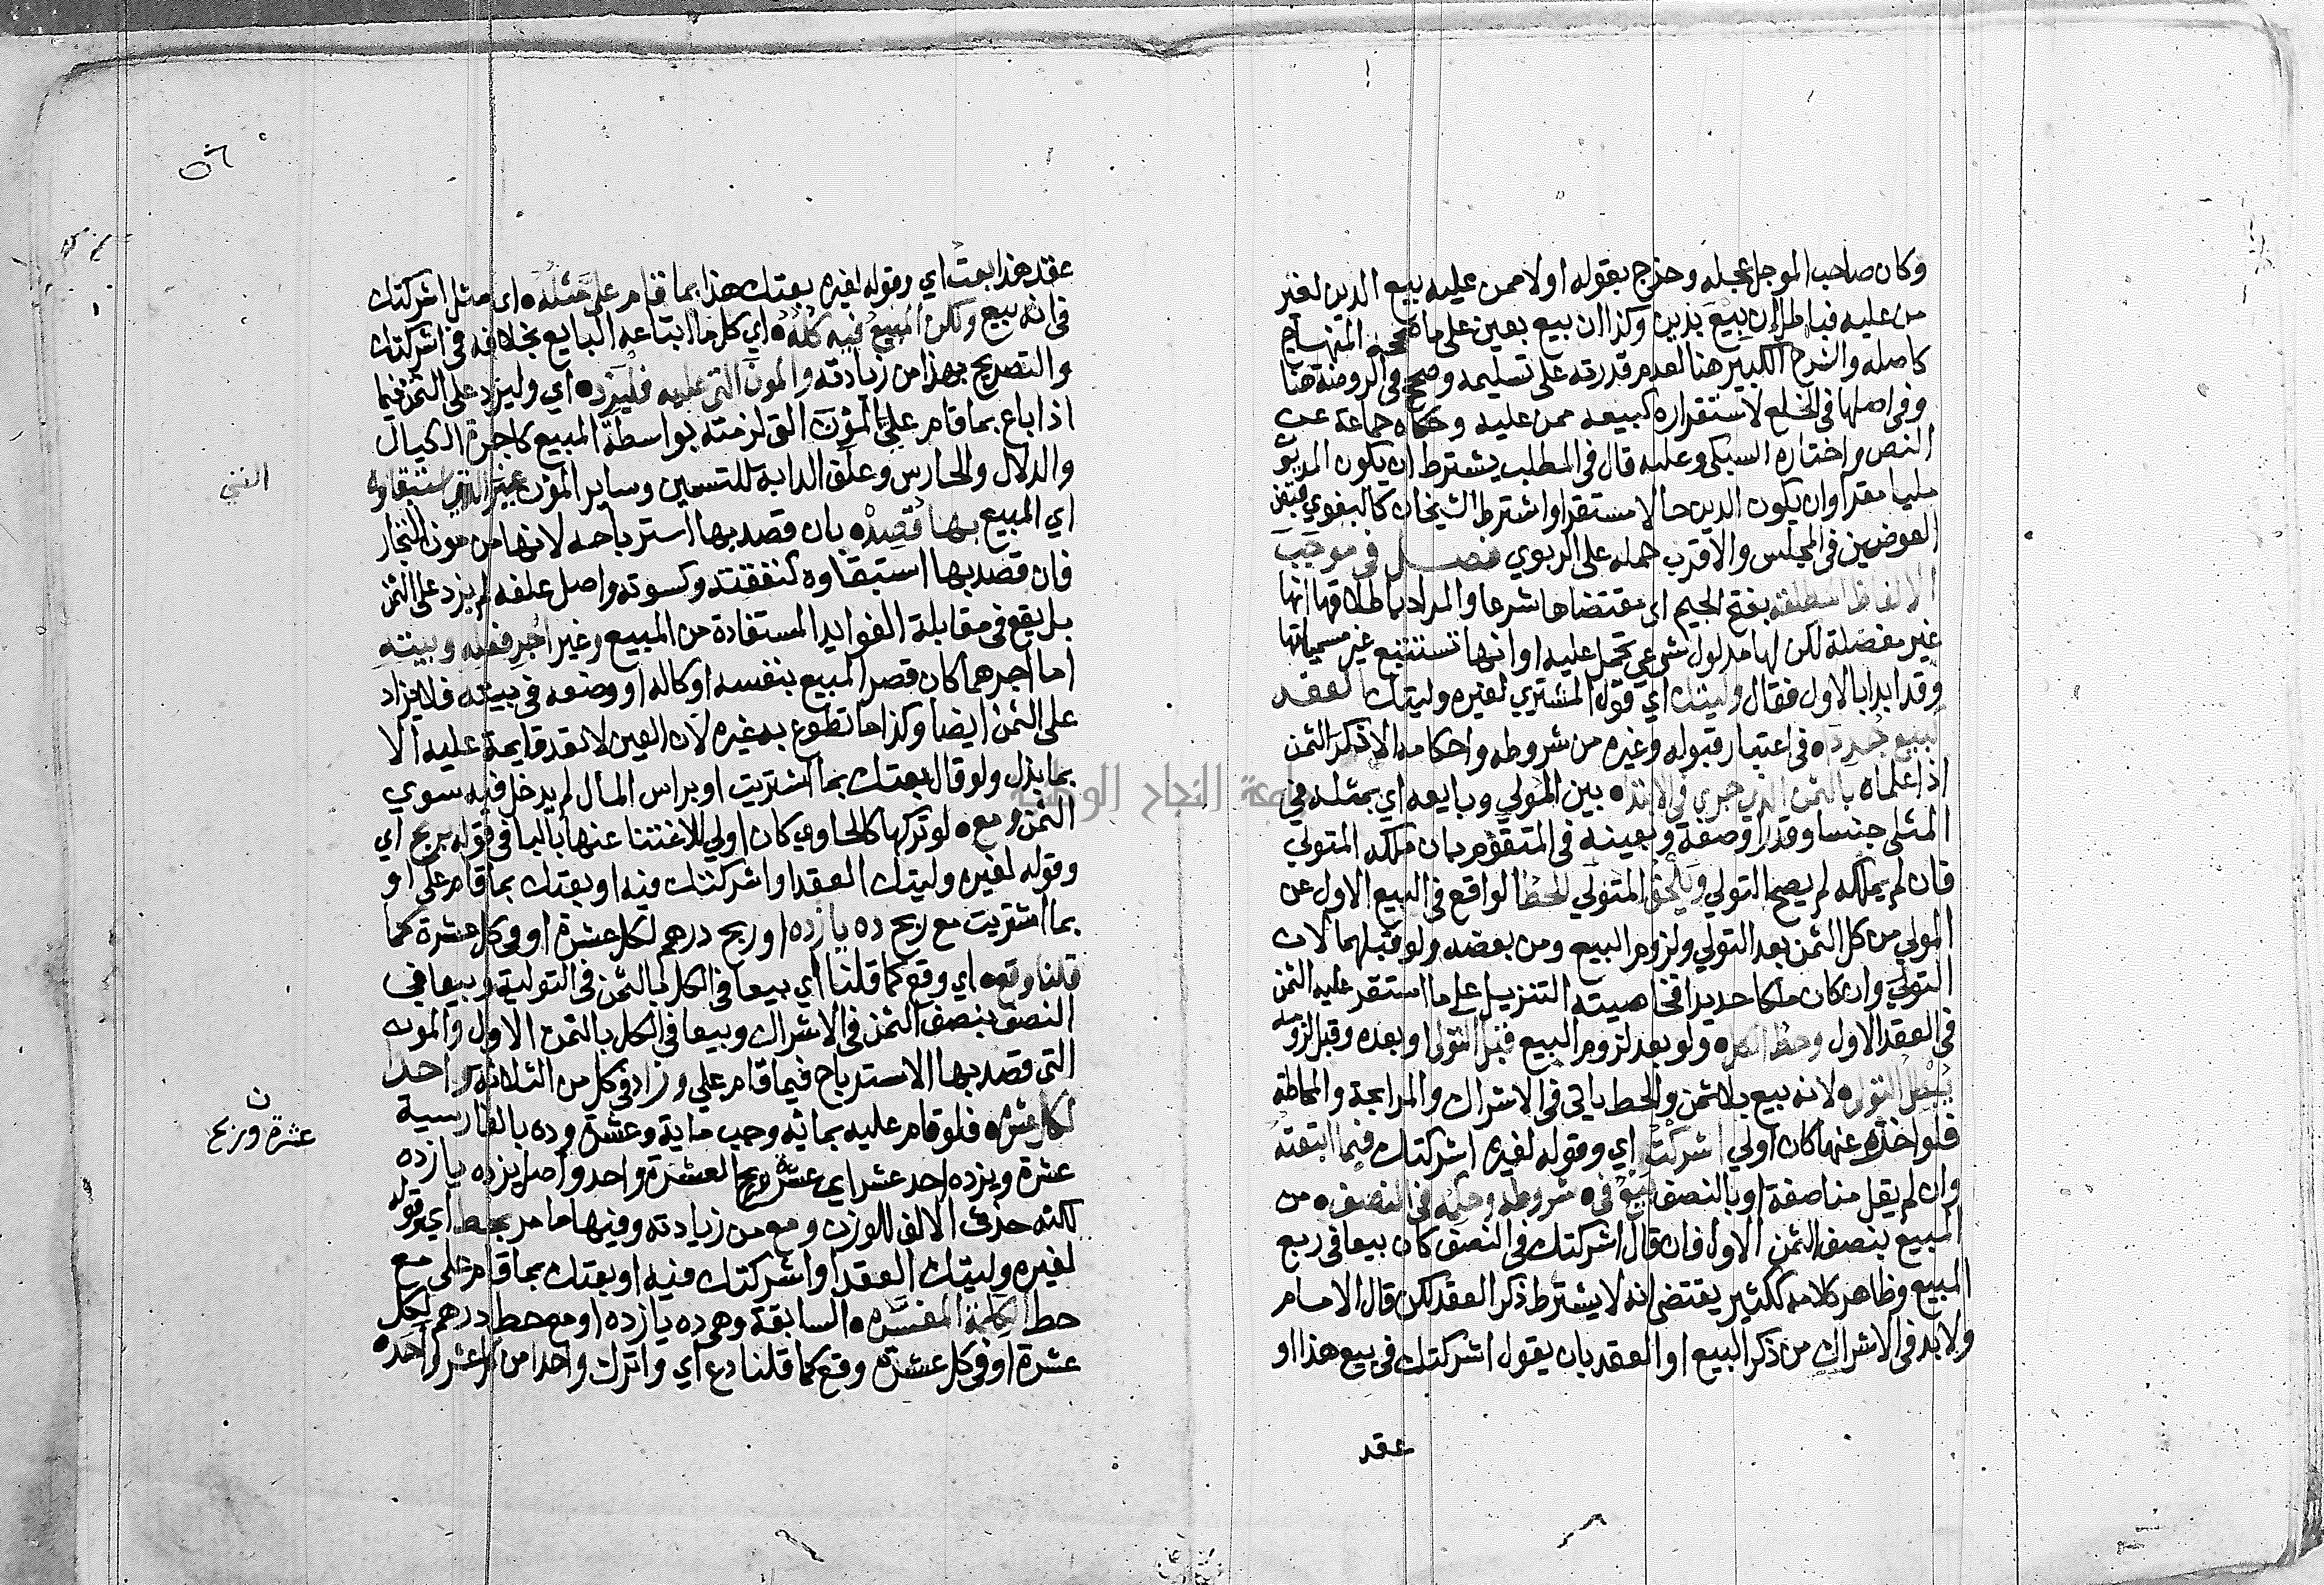 وكان صاحب الموجل عجله وخرج بقوله اولا ممن عليه بيع الدين لغير
من عليه فباطل ان بيع بدين وكذا ان بيع بعين على ما صححه المنهاج
كاصله والشرح الكبير هنا لعدم قدرته على تسليمه وصحح في الروضة هنا
وفي اصلها في الخلع لاستقراره كبيعه ممن عليه وحكاه جماعة عن
النص واختاره السبكي وعليه قال في المطلب يشترط ان يكون المديون
مليا مقرا وان يكون الدين حالا مستقرا واشترط الشيخان كالبغوي قبض
العوضين في المجلس والاقرب حمله على الربوي فصل في موجب
الالفاظ المطلقة بفتح الجيم اي مقتضاها شرعا والمراد باطلاقها انها
غير مفصلة لكن لها مدلول شرعي تحمل عليه او انها تستتبع غير مسمياتها
وقد ابدا بالاول فقال وليتك اي قول المشتري لغيره وليتك العقد
كبيع جددا في اعتبار قبوله وغيره من شروطه واحكامه الا ذكر الثمن
اذا علماه بالثمن الذي جري في الابتدا بين المولي وبايعه اي بمثله في
المثلي جنسا وقدرا وصفة وبعينه في المتقوم بان ملكه المتولي
فان لم يملكه لم يصح التولي ويلحق المتولي للحط الواقع في البيع الاول عن
المولي من كل الثمن بعد التولي ولزوم البيع ومن بعضه ولو قبلهما لان
التولي وان كان ملكا جديدا فخاصيته التنزيل على ما استقر عليه الثمن
في العقد الاول وحط الكل ولو بعد لزوم البيع قبل التولي او بعده وقبل لزومه
يبطل التولي لانه بيع بلا ثمن والحط ياتي في الاشراك والمرابحة والمحاطة
فلو اخره عنها كان اولي اشركت اي وقوله لغيره اشركتك فيما ابتعته
وان لم يقل مناصفة او بالنصف بيع في شروطه وحكمه في النصف من
المبيع بنصف الثمن الاول فان قال اشركتك في النصف كان بيعا في ربع
المبيع وظاهر كلامه ككثير يقتضي انه لا يشترط ذكر العقد لكن قال الامام
ولا بد في الاشراك من ذكر البيع او العقد بان يقول اشركتك في بيع هذا او
عقد
عقد هذا بعت اي وقوله لغيره بعتك هذا بما قام علي مثله اي مثل اشركتك
في انه بيع ولكن المبيع فيه كله اي كل ما ابتاعه البايع بخلافه في اشركتك
والتصريح بهذا من زيادته والمون التي عليه فليزده اي وليزد على الثمن فيما
اذا باع بما قام علي المؤن التي لزمته بواسطة المبيع كاجرة الكيال
والدلال والحارس وعلف الدابة للتسمين وساير المؤن غير التي استبقاوه
اي المبيع بها قصده بان قصد بها استرباحه لانها من مون التجار
فان قصد بها استبقاوه كنفقته وكسوته واصل علفه لم يزد على الثمن
بل يقع في مقابلة الفوايد المستفادة من المبيع وغير اجر فعله وبيته
اما اجرهما كان قصر المبيع بنفسه او كاله او وضعه في بيته فلا يزاد
على الثمن ايضا وكذا ما تطوع به غيره لان العين لا تعد قايمة عليه الا
بما بذل ولو قال بعتك بما اشتريت او براس المال لم يدخل فيه سوي
الثمن ومع لو تركها كالحاوي كان اولي للاغتنا عنها بالبا في قوله بربح اي
وقوله لغيره وليتك العقد او اشركتك فيه او بعتك بما قام علي او
بما اشتريت مع ربح ده يازده او ربح درهم لكل عشرة او في كل عشرة كما
قلنا وقع اي وقع كما قلنا اي بيعا في الكل بالثمن في التولية وبيعا في
النصف بنصف الثمن في الاشراك وبيعا في الكل بالثمن الاول والمون
التي قصد بها الاسترباح فيما قام علي وزاد في كل من الثلاثة واحد
لكل عشرة فلو قام عليه بمايه وجب ماية وعشرة وده بالفارسية
عشرة ويزده احد عشر اي عشرة ربح العشرة واحد واصل يزده يازده
لكنه حذف الالف للوزن ومع من زيادته وفيها ما مر بحط اي وقوله
لغيره وليتك العقد او اشركتك فيه او بعتك بما قام علي مع
حط الكلمة المفسره السابقة وهي ده يازده او مع حط درهم لكل
عشرة او في كل عشرة وقع كما قلنا دع اي واترك واحدا من كل عشر واحده
عشرة وربح